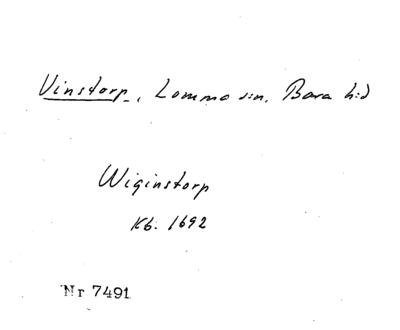 Vinstorp, Lomma s:n, Bara h:d
Wiginstorp
Kb. 1692
Nr 7491